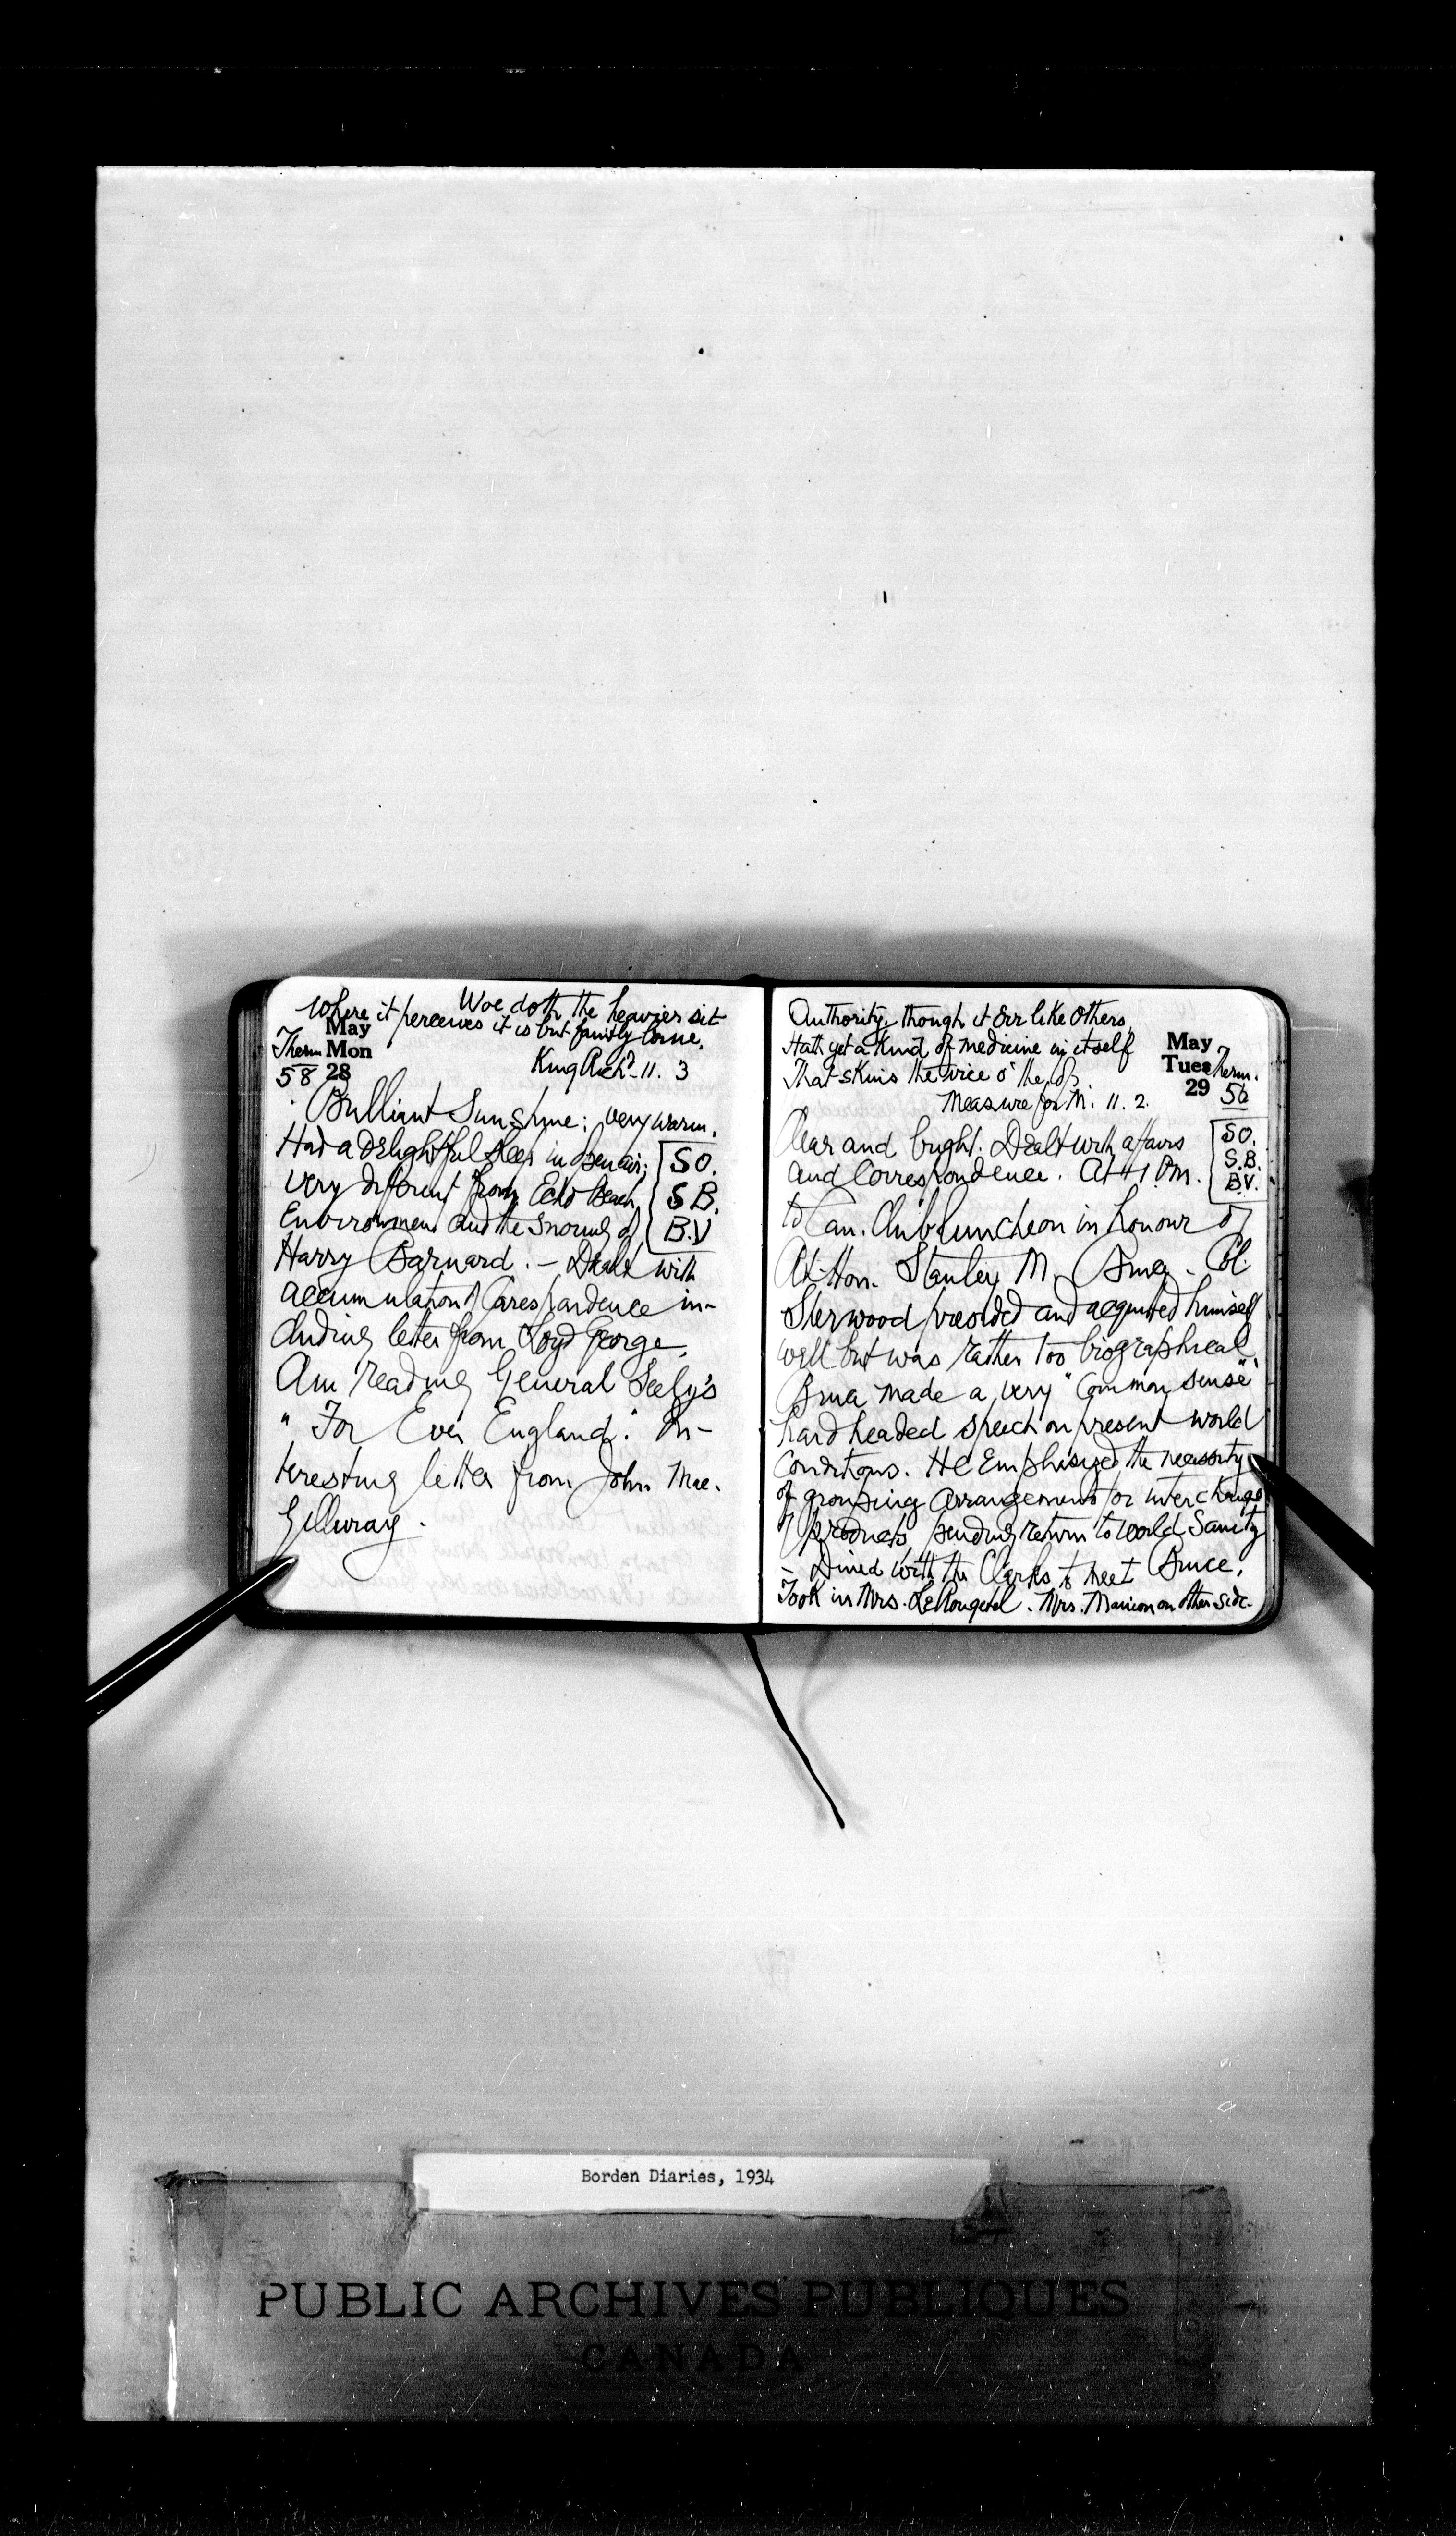 Woe doth the heavier sit
Where it perceives it is but faintly borne.
King Rich. 11. 3
May
Mon
28
Therm
58
Brilliant Sunshine; very warm.
Had a delightful sleep in open air;
very different from Echo Beach
Environment and the snoring of
SO.
S B.
B.V
Harry Barnard. – Dealt with
accumulation of Correspondence in-
cluding letter from Loyd George.
Am reading General Seely's
" For Ever England." In-
teresting letter from John Mac.
Gillivray.
Authority, though it err like others,
Hath yet a kind of medicine in itself
That skins the vice o' the top.
Measure for M. 11. 2.
May
Tues
29
Therm.
56
Clear and bright. Dealt with affairs
and Correspondence. At 1 P.M.
SO.
S.B.
B.V.
to Can. Club Luncheon in honour of
Rt. Hon. Stanley M. Bruce. Col.
Sherwood presided and acquitted himself
well but was rather too biographical.
Bruce made a very "Common sense"
hard headed speech on present world
Conditions. He Emphasized the necessity
of grouping arrangements for interchange
of products, pending return to world Sanity
– Dined with the Clarks to meet Bruce.
Took in Mrs. LeRougetel. Mrs. on other side.
Borden Diaries, 1934
PUBLIC ARCHIVES PUBLIQUES
CANADA